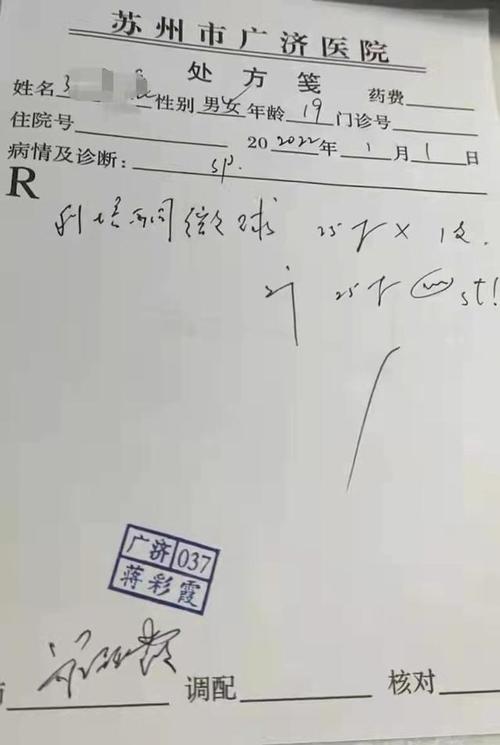 苏州市广济医院
处方笺
姓名 性别 男女 年龄 19 门诊号 药费
住院号 20 2022 年 1 月 1 日
病情及诊断: sp.
R
利培酮微球 25 × 1支.
25 st!
广济 037
蒋彩霞
调配 核对